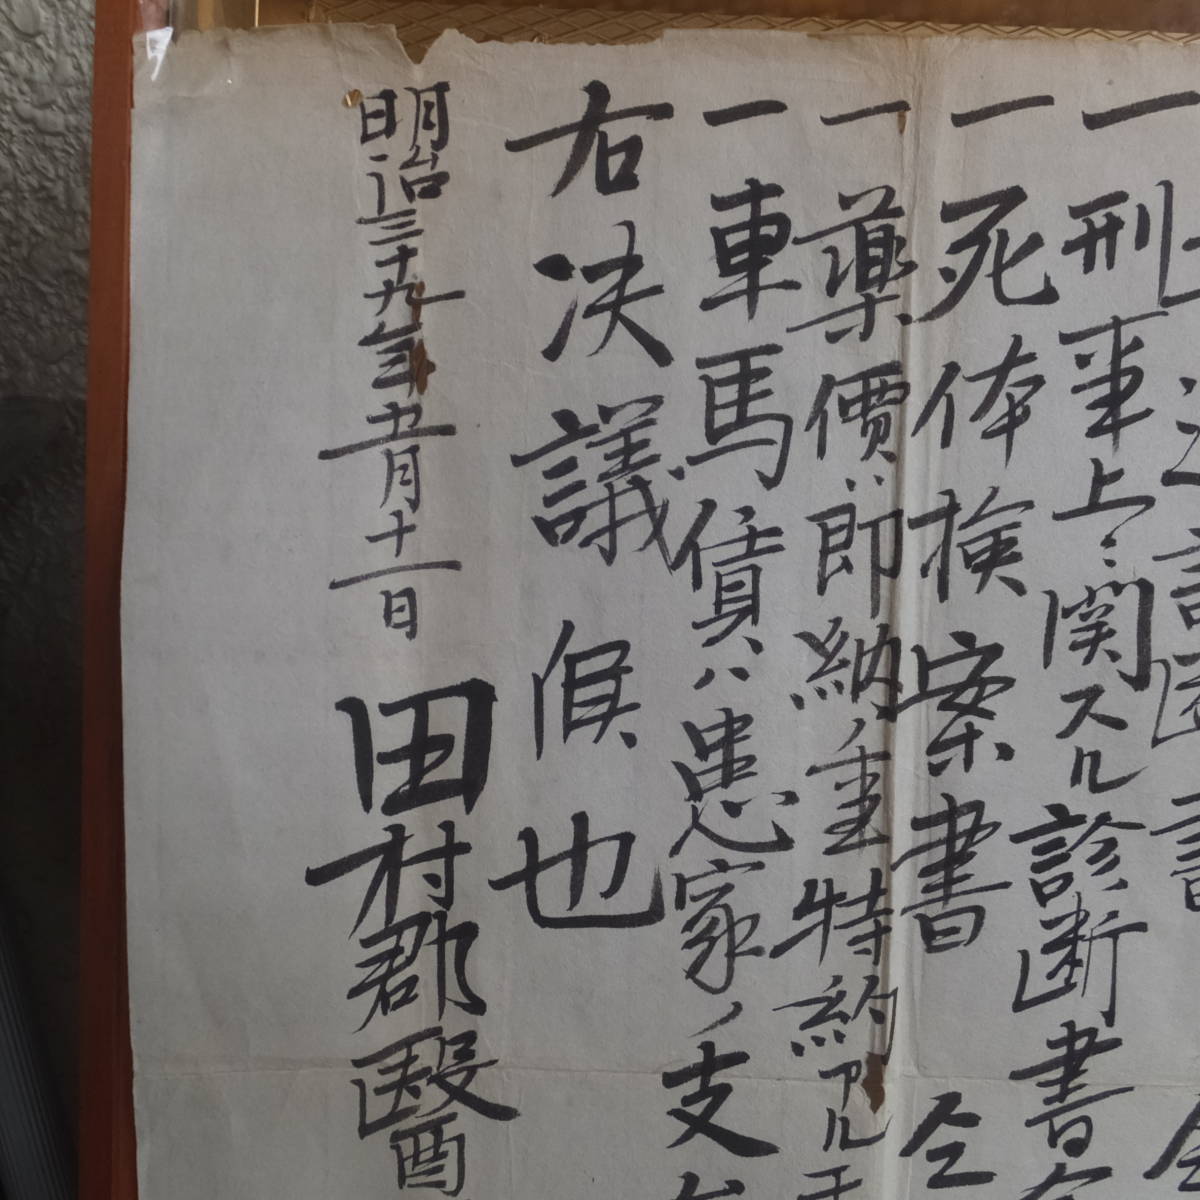 一刑事上ニ関スル診断書
一死体検案書 仝
一薬價ハ即納ノ事特約アル
一車馬賃ハ患家ノ支
右决議候也
明治三十九年五月十一日 田村郡醫